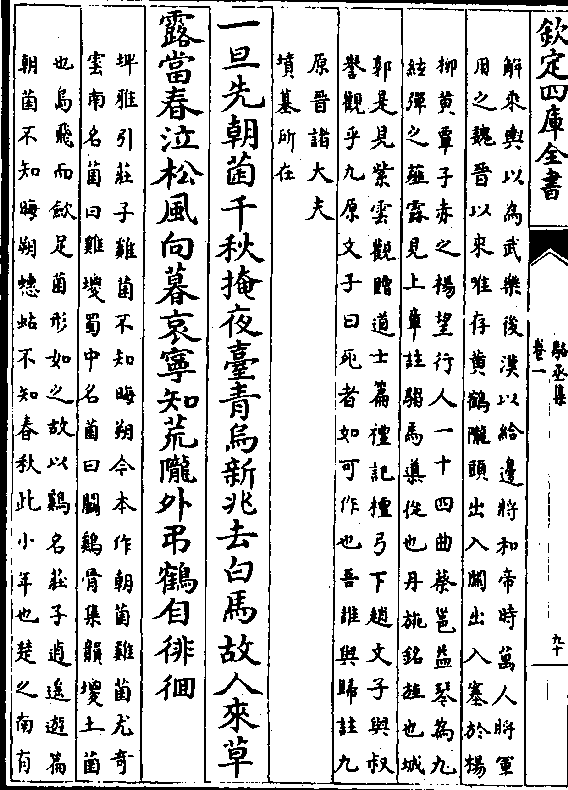 欽定四庫全書
駱丞集
卷一
九十
解來輿以為武樂後漢以給邊將和帝時萬人將軍
用之魏晉以來唯存黃鵠隴頭出入關出入塞於楊
柳黃覃子赤之楊望行人一十四曲蔡邕益琴為九
絃彈之薤露見上章註騶馬導從也丹旐銘旌也城
郭是見紫雲觀贈道士篇禮記檀弓下趙文子與叔
譽觀乎九原文子曰死者如可作也吾誰與歸註九
原晉諸大夫
墳墓所在
一旦先朝菌千秋掩夜臺青烏新兆去白馬故人來草
露當春泣松風向暮哀寧知荒隴外弔鶴自徘徊
埤雅引莊子雞菌不知晦朔今本作朝菌雞菌尤奇
雲南名菌曰雞㙡蜀中名菌曰鬭鷄骨集韻㙡土菌
也鳥飛而歛足菌形如之故以鷄名莊子逍遙遊篇
朝菌不知晦朔蟪蛄不知春秋此小年也楚之南有